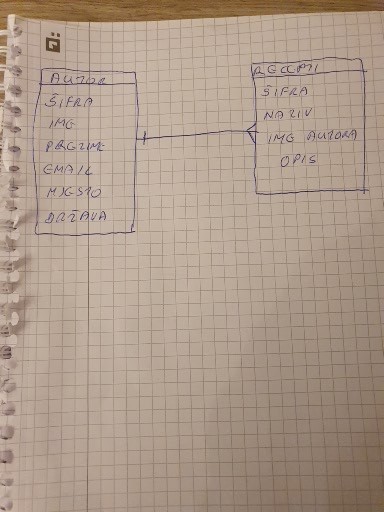 AUTOR
ŠIFRA
IME
PREZIME
EMAIL
MJESTO
DRŽAVA
RECEPTI
ŠIFRA
NAZIV
IME AUTORA
OPIS